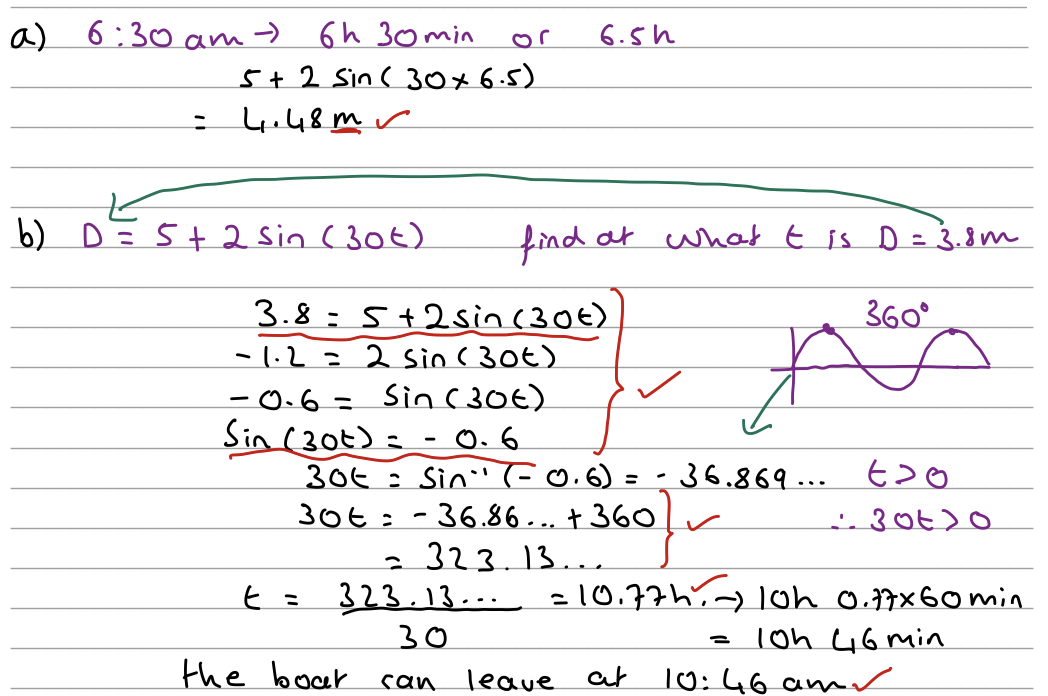 a) 6:30 am → 6h 30min or 6.5h
5 + 2 sin( 30 × 6.5)
= 4.48 m ✓
b) D = 5 + 2 sin (30t) find at what t is D = 3.8m
3.8 = 5 + 2 sin (30t)
360°
-1.2 = 2 sin (30t)
-0.6 = sin (30t) ✓
sin (30t) = - 0.6
30t = sin⁻¹ (- 0.6) = - 36.869... t > 0
30t = - 36.86... + 360 ✓ ∴ 30t > 0
= 323.13...
t = 323.13... / 30 = 10.77h. ✓ → 10h 0.77×60 min
= 10h 46 min
the boat can leave at 10:46 am ✓